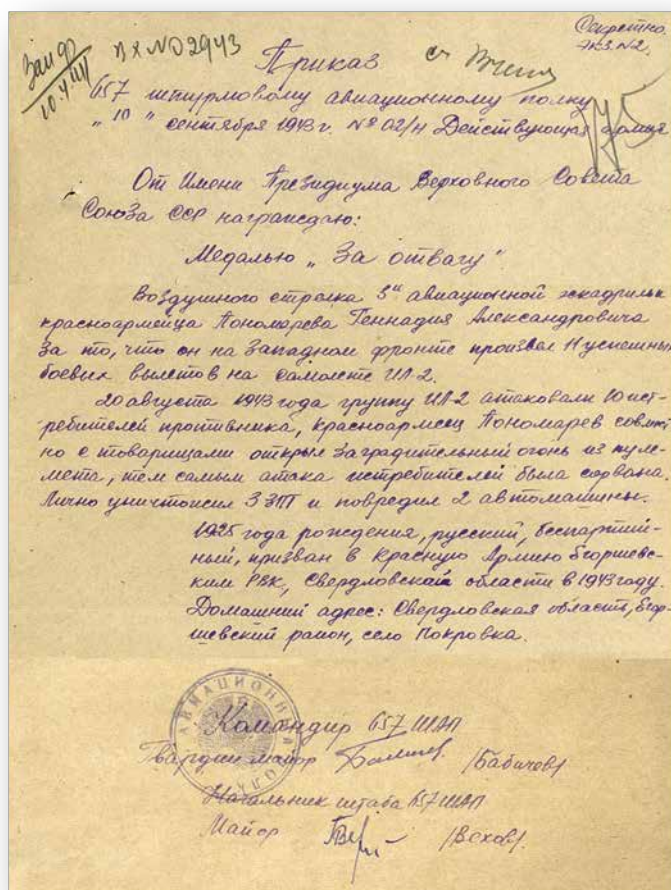 Секретно.
Экз. №2.
вх №02943
Приказ
657 штурмовому авиационному полку
"10" сентября 1943 г. № 02/н Действующая армия
От Имени Президиума Верховного Совета
Союза ССР награждаю:
Медалью „За отвагу"
Воздушного стрелка 3й авиационной эскадрильи
красноармейца Пономарева Геннадия Александровича
за то, что он на Западном фронте произвел 11 успешных
боевых вылетов на самолете ИЛ-2.
20 августа 1943 года группу ИЛ-2 атаковали 10 ист-
ребителей противника, красноармеец Пономарев совмест
но с товарищами открыл заградительный огонь из пуле-
мета, тем самым атака истребителей была сорвана.
Лично уничтожил 3 ЗТ и повредил 2 автомашины.
1925 года рождения, русский, беспартий-
ный, призван в Красную Армию Егоршевс-
ким РВК, Свердловской области в 1943 году.
Домашний адрес: Свердловская область, Егор-
шевский район, село Покровка.
Командир 657 ШАП
Гвардии майор /Бабичев/
Начальник штаба 657 ШАП
Майор /Вехов/.